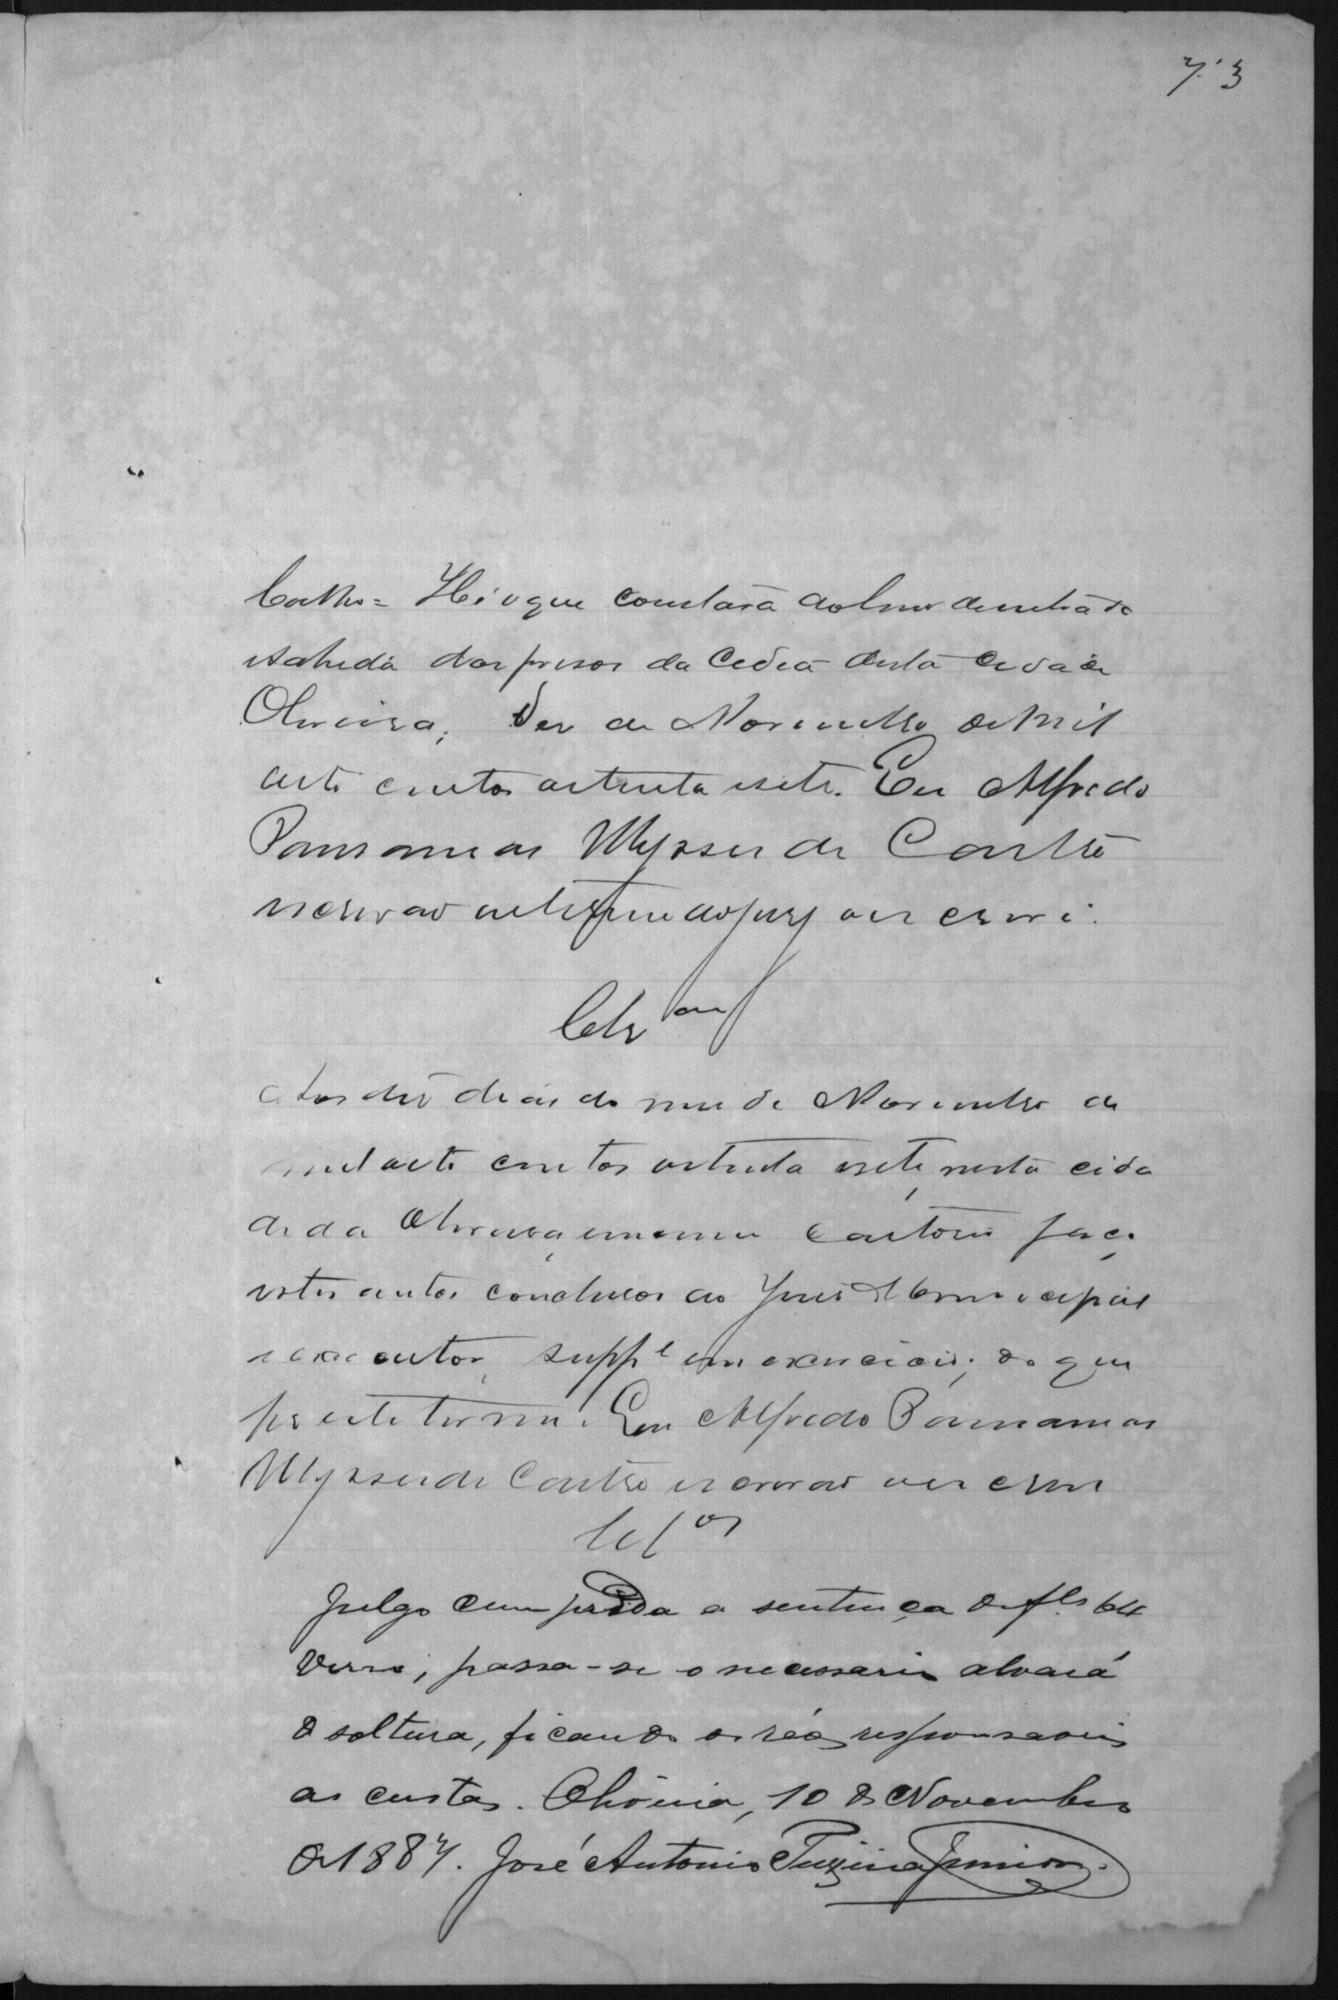 73
Castro = He o que constará do livro de entrada
e sahida dos presos da Cadea desta cidade
Oliveira, dez de Novembro de mil
oito centos oitenta e sete. Eu Alfredo
Pausanias Ulysses de Castro
escrivão interino do jury o escrevi.
Clsam
Aos dez dias do mez de Novembro de
mil oito centos oitenta e sete, nesta cida
de da Oliveira, em meu Cartorio faço
estes autos conclusos ao Juiz Municipal
e executor, suppe em exercicio; do que
fiz este termo. Eu Alfredo Pausanias
Ulysses de Castro escrivão o escrevi
Clos
Julgo cumprida a sentença de fls 64
verso, passa-se o necessario alvará
de soltura, ficando os réos responsaveis
as custas. Oliveira, 10 de Novembro
de 1887. José Antonio Junior